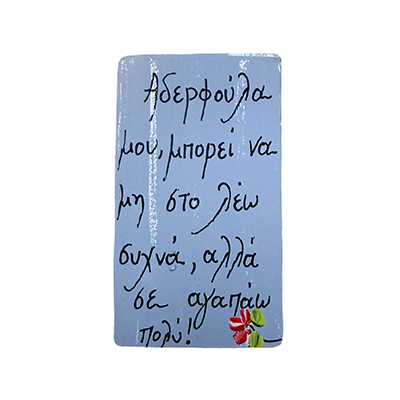 Αδερφούλα
μου, μπορεί να
μη στο λέω
συχνά, αλλά
σε αγαπάω
πολύ!